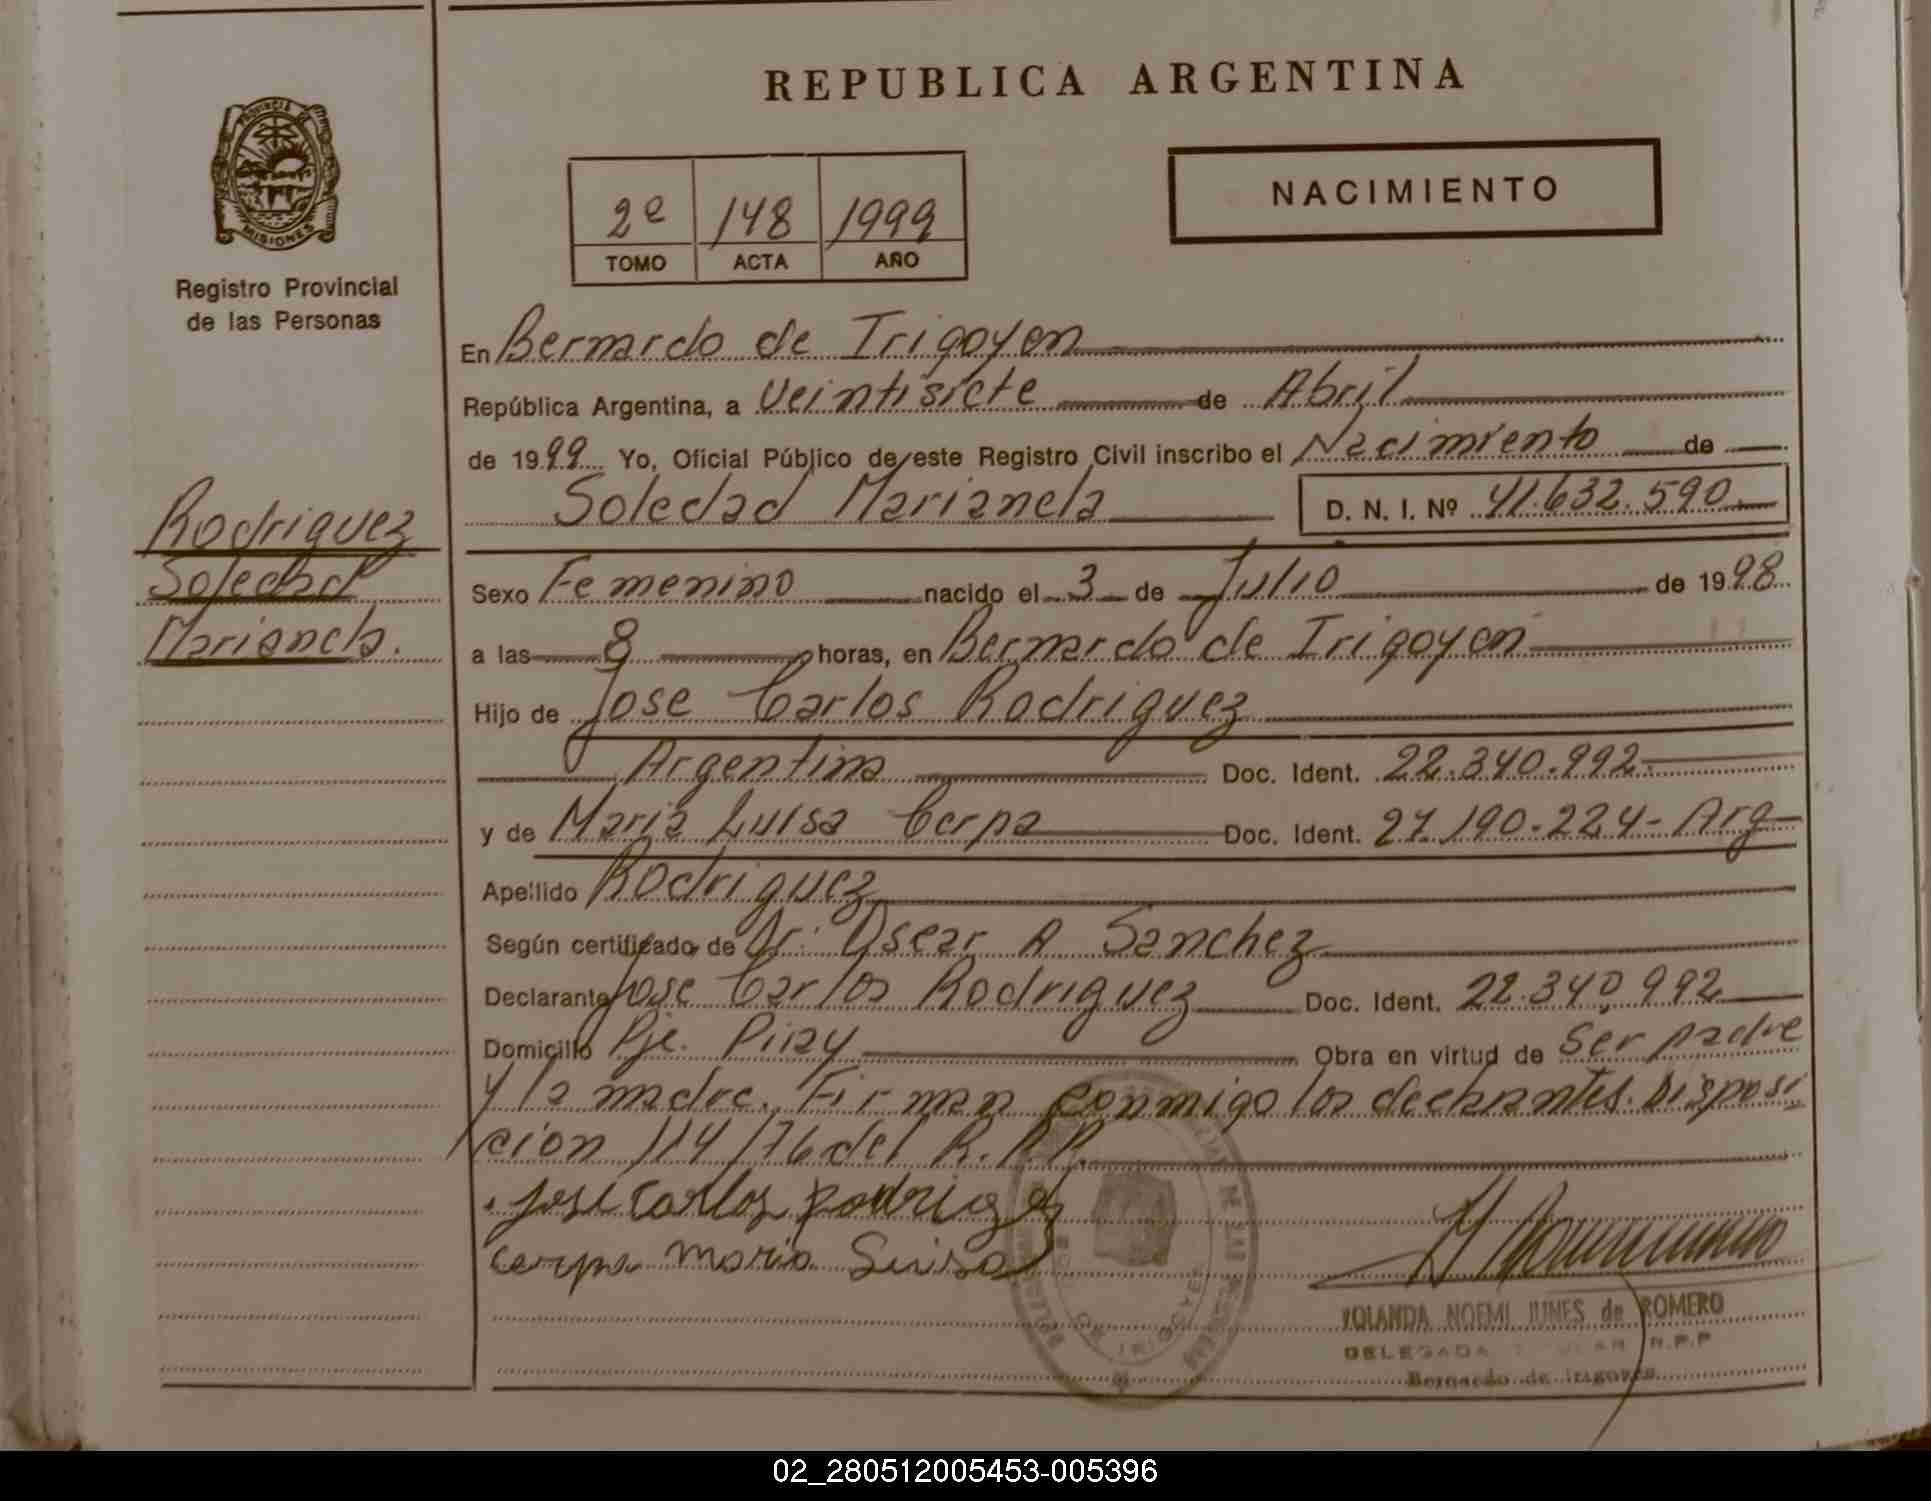 PROVINCIA DE
MISIONES
Registro Provincial
de las Personas
Rodriguez
Soledad
Marianela.
REPUBLICA ARGENTINA
2º 148 1999
TOMO ACTA AÑO
NACIMIENTO
En Bernardo de Irigoyen
República Argentina, a Veintisiete de Abril
de 1999 Yo, Oficial Público de este Registro Civil inscribo el Nacimiento de
Soledad Marianela D. N. I. Nº 41.632.590
Sexo Femenino nacido el 3 de Julio de 1998
a las 8 horas, en Bernardo de Irigoyen
Hijo de Jose Carlos Rodriguez
Argentina Doc. Ident. 22.340.992.
y de Maria Luisa Cerpa Doc. Ident. 27.190.224- Arg
Apellido Rodriguez
Según certificado de Dr. Oscar A Sanchez
Declarante Jose Carlos Rodriguez Doc. Ident. 22.340.992
Domicilio Pje. Piray Obra en virtud de Ser padre
y la madre. Firman conmigo los declarantes. Disposi
cion 114/76 del R.P.P.
Jose Carlos Rodriguez
cerpa maria Luisa
YOLANDA NOEMI JUNES de ROMERO
DELEGADA TITULAR R.P.P
Bernardo de Irigoyen
02_280512005453-005396